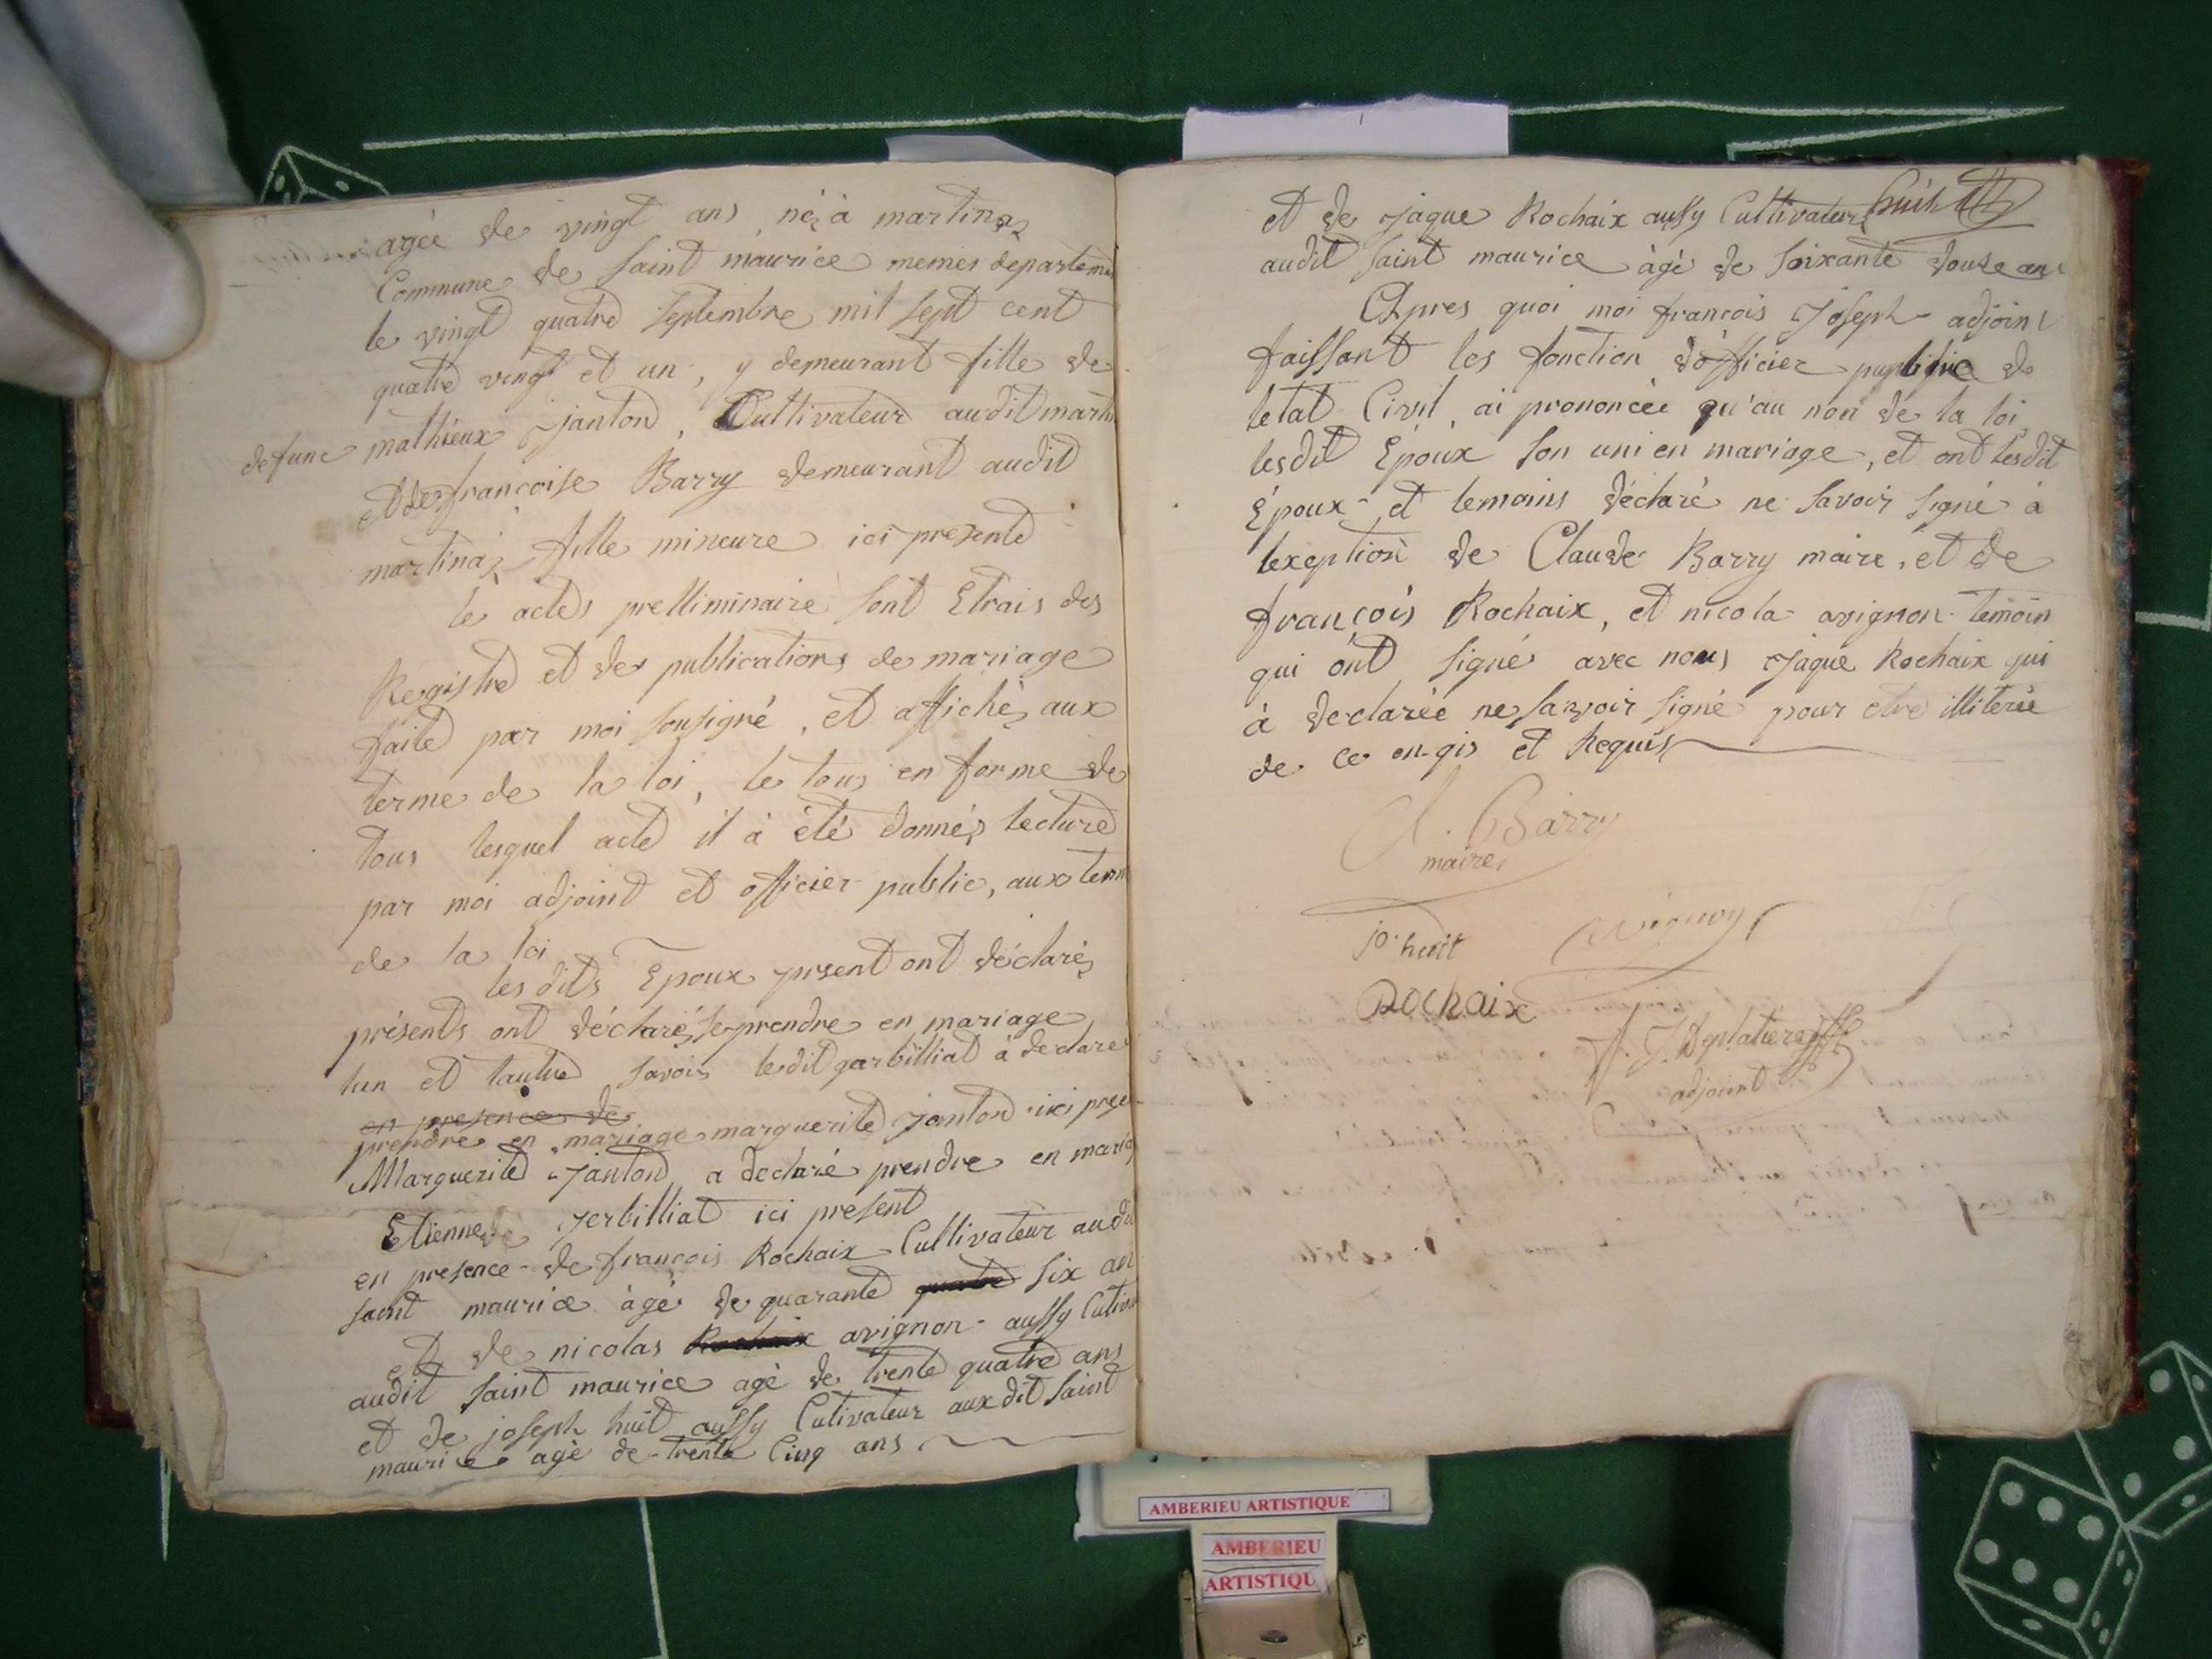 agée de vingt ans, néz à martinaz
Commune de saint maurice memes departeme
le vingt quatre septembre mil sept cent
quatre vingt et un, y demeurant fille de
mathieux janton, Cultivateur audit martin
defunc
et de francoise Barry demeurant audit
martinaz, fille mineure ici presente
le actes prelliminaire sont Etrais des
Registre et des publications de mariage
faite par moi sousigné, et affichéz aux
terme de la loi, le tous en forme de
tous lesquel acte il à été donnéz lecture
par moi adjoint et officier public, aux term
de la loi
les dits Epoux prsent ont déclaréz
présents ont déclaréz se prendre en mariage
lun et lautre savoir ledit garbilliat à declare
en presence de
prendre en mariage marguerite janton ici prese
Marguerite janton a declaré prendre en maria
Etienne jerbilliat ici present
en presence de francois Rochaix Cultivateur audit
saint maurice àgé de quarante quatre six an
et de nicolas Rochaix avignon aussy Cutiva
audit saint maurice agé de trente quatre ans
et de joseph huit aussy Cutivateur aux dit saint
maurice agè de trente Cinq ans
et de jaque Rochaix aussy Cultivateur huit
audit saint maurice àgé de soixante douze ans
Apres quoi moi francois Joseph adjoint
faissant les fonction d'officier puplique de
letat Civil, ai prononcée qu'au non de la loi,
lesdit Epoux son uni en mariage, et ont lesdit
Epoux et temoins déclaré ne savoir signé à
lexeption de Claude Barry maire, et de
françois Rochaix, et nicola avignon temoin
qui ont signé avec nous jaque Rochaix qui
à declarée ne savoir signé pour etre illiterée
de ce en-gis et Requis
Cl. Barry
maire
jo. huit avignon
Rochaix
adjoint
AMBERIEU ARTISTIQUE
AMBERIEU
ARTISTIQU